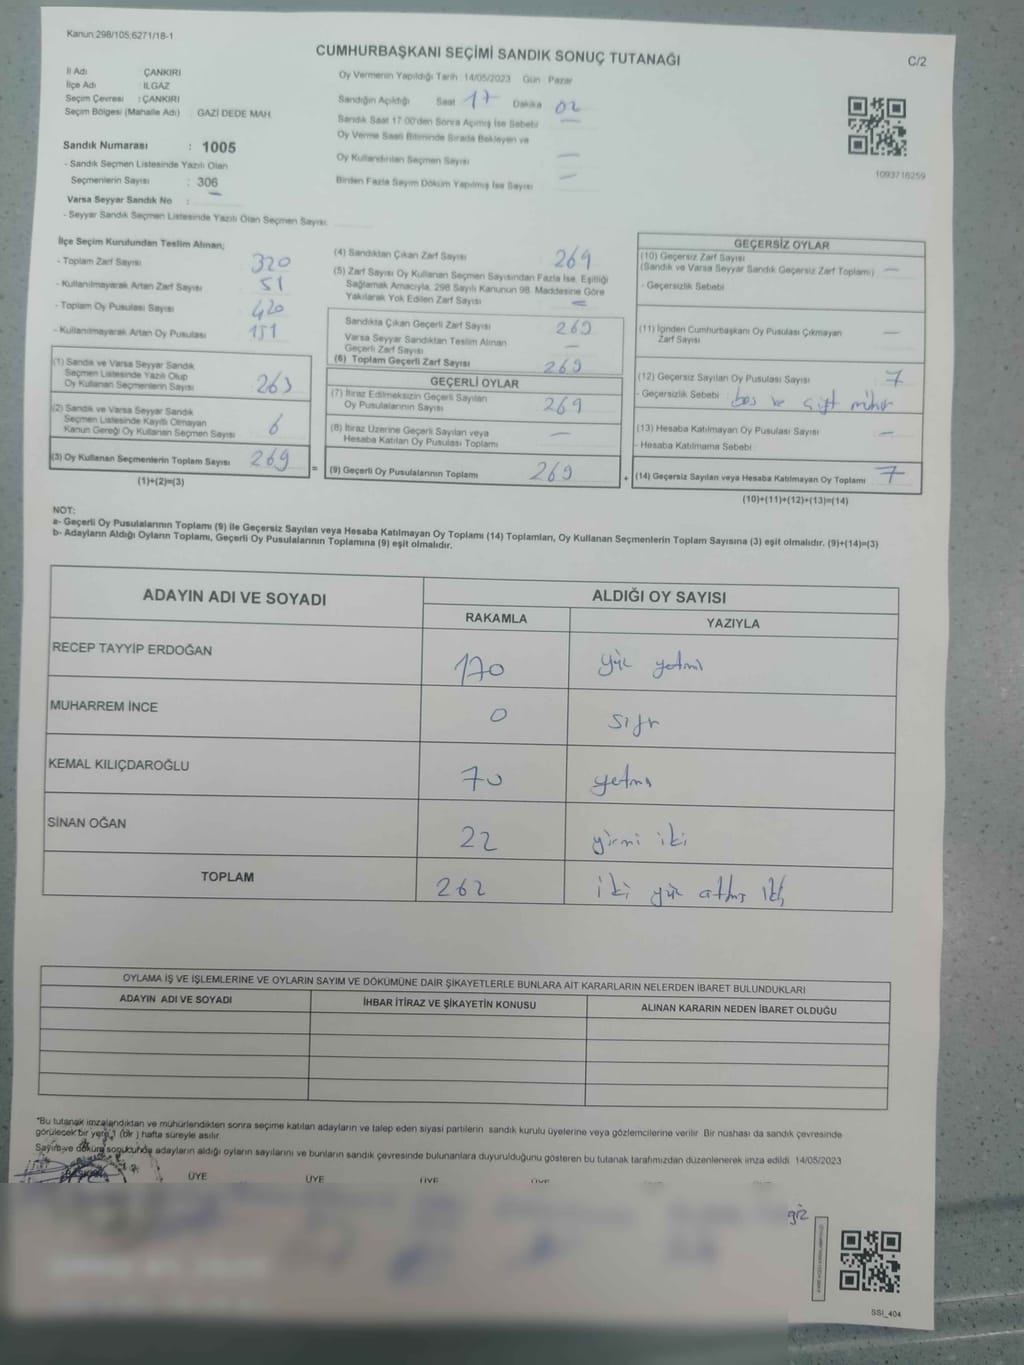 Kanun:298/105;6271/18-1
CUMHURBAŞKANI SEÇİMİ SANDIK SONUÇ TUTANAĞI
C/2
İl Adı : ÇANKIRI
İlçe Adı : ILGAZ
Seçim Çevresi : ÇANKIRI
Seçim Bölgesi (Mahalle Adı) : GAZİ DEDE MAH
Sandık Numarası : 1005
- Sandık Seçmen Listesinde Yazılı Olan
Seçmenlerin Sayısı : 306
Varsa Seyyar Sandık No :
- Seyyar Sandık Seçmen Listesinde Yazılı Olan Seçmen Sayısı:
Oy Vermenin Yapıldığı Tarih :14/05/2023 Gün :Pazar
Sandığın Açıldığı Saat 17 Dakika 02
Sandık Saat 17.00'den Sonra Açımış İse Sebebi
Oy Verme Saati Bitiminde Sırada Bekleyen ve
Oy Kullandırılan Seçmen Sayısı —
Birden Fazla Sayım Döküm Yapılmış İse Sayısı —
1093716259
İlçe Seçim Kurulundan Teslim Alınan;
- Toplam Zarf Sayısı 320
- Kullanılmayarak Artan Zarf Sayısı 51
- Toplam Oy Pusulası Sayısı 420
- Kullanılmayarak Artan Oy Pusulası 151
(1) Sandık ve Varsa Seyyar Sandık
Seçmen Listesinde Yazılı Olup
Oy Kullanan Seçmenlerin Sayısı 263
(2) Sandık ve Varsa Seyyar Sandık
Seçmen Listesinde Kayıtlı Olmayan
Kanun Gereği Oy Kullanan Seçmen Sayısı 6
(3) Oy Kullanan Seçmenlerin Toplam Sayısı 269
(1)+(2)=(3)
(4) Sandıktan Çıkan Zarf Sayısı 269
(5) Zarf Sayısı Oy Kullanan Seçmen Sayısından Fazla İse, Eşitliği
Sağlamak Amacıyla, 298 Sayılı Kanunun 98. Maddesine Göre
Yakılarak Yok Edilen Zarf Sayısı —
Sandıkta Çıkan Geçerli Zarf Sayısı 269
Varsa Seyyar Sandıktan Teslim Alınan
Geçerli Zarf Sayısı —
(6) Toplam Geçerli Zarf Sayısı 269
GEÇERLİ OYLAR
(7) İtiraz Edilmeksizin Geçerli Sayılan
Oy Pusulalarının Sayısı 269
(8) İtiraz Üzerine Geçerli Sayılan veya
Hesaba Katılan Oy Pusulası Toplamı —
= (9) Geçerli Oy Pusulalarının Toplamı 269
GEÇERSİZ OYLAR
(10) Geçersiz Zarf Sayısı
(Sandık ve Varsa Seyyar Sandık Geçersiz Zarf Toplamı) —
- Geçersizlik Sebebi
(11) İçinden Cumhurbaşkanı Oy Pusulası Çıkmayan
Zarf Sayısı —
(12) Geçersiz Sayılan Oy Pusulası Sayısı 7
- Geçersizlik Sebebi boş ve çift mühür
(13) Hesaba Katılmayan Oy Pusulası Sayısı —
- Hesaba Katılmama Sebebi
+ (14) Geçersiz Sayılan veya Hesaba Katılmayan Oy Toplamı 7
(10)+(11)+(12)+(13)=(14)
NOT:
a- Geçerli Oy Pusulalarının Toplamı (9) ile Geçersiz Sayılan veya Hesaba Katılmayan Oy Toplamı (14) Toplamları, Oy Kullanan Seçmenlerin Toplam Sayısına (3) eşit olmalıdır. (9)+(14)=(3)
b- Adayların Aldığı Oyların Toplamı, Geçerli Oy Pusulalarının Toplamına (9) eşit olmalıdır.
ADAYIN ADI VE SOYADI ALDIĞI OY SAYISI
RAKAMLA YAZIYLA
RECEP TAYYİP ERDOĞAN 170 yüz yetmiş
MUHARREM İNCE 0 sıfır
KEMAL KILIÇDAROĞLU 70 yetmiş
SİNAN OĞAN 22 yirmi iki
TOPLAM 262 iki yüz atmış iki
OYLAMA İŞ VE İŞLEMLERİNE VE OYLARIN SAYIM VE DÖKÜMÜNE DAİR ŞİKAYETLERLE BUNLARA AİT KARARLARIN NELERDEN İBARET BULUNDUKLARI
ADAYIN ADI VE SOYADI İHBAR İTİRAZ VE ŞİKAYETİN KONUSU ALINAN KARARIN NEDEN İBARET OLDUĞU
*Bu tutanak imzalandıktan ve mühürlendikten sonra seçime katılan adayların ve talep eden siyasi partilerin sandık kurulu üyelerine veya gözlemcilerine verilir. Bir nüshası da sandık çevresinde
görülecek bir yere 1 (bir ) hafta süreyle asılır.
Sayım ve döküm sonucunda adayların aldığı oyların sayılarını ve bunların sandık çevresinde bulunanlara duyurulduğunu gösteren bu tutanak tarafımızdan düzenlenerek imza edildi. 14/05/2023
ÜYE ÜYE ÜYE ÜYE
SSI_404